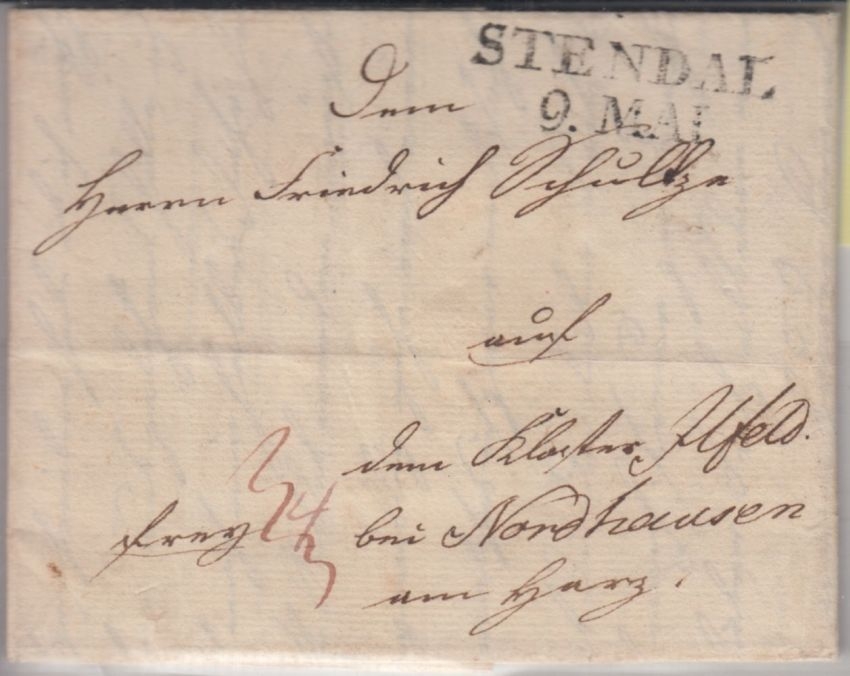 STENDAL
9. MAI
Dem
Herrn Friedrich Schultze
auf
dem Kloster Ilfeld.
frey bei Nordhausen
am Harz.